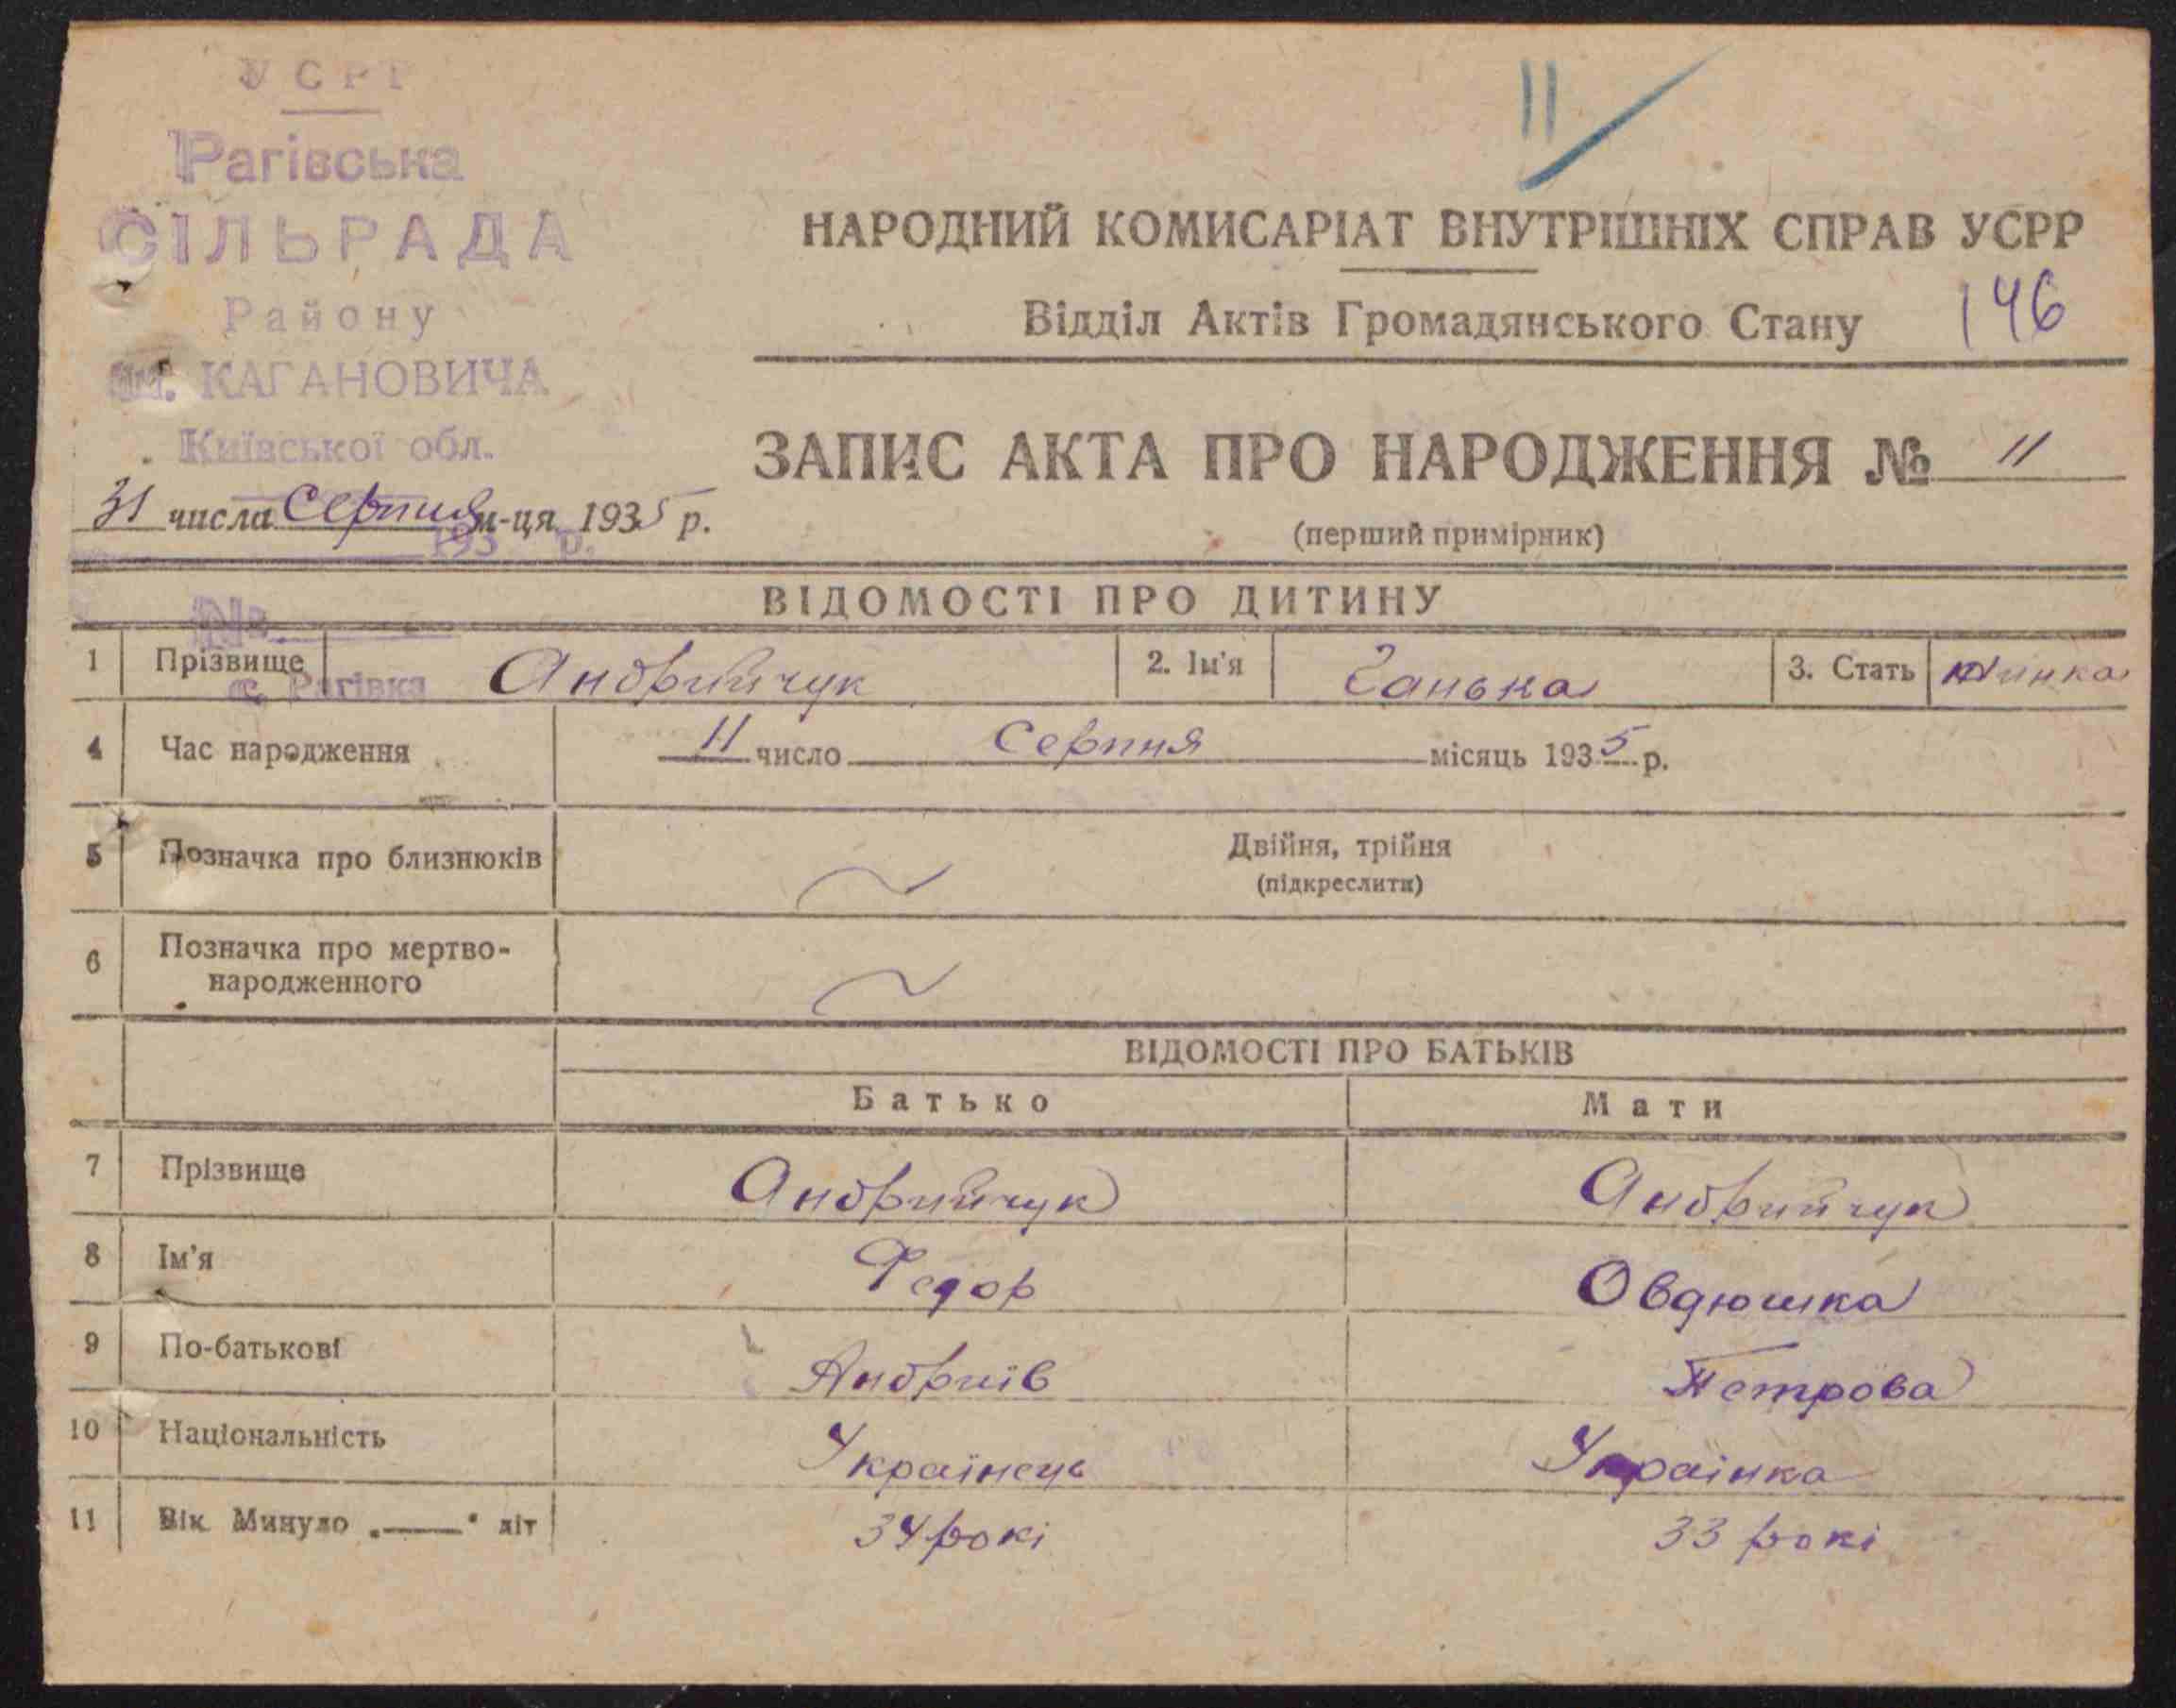 УСРР
Рагівська
СІЛЬРАДА
Району
ім. КАГАНОВИЧА
Київської обл.
193 р.
№
с. Рагівка
11
НАРОДНИЙ КОМИСАРІАТ ВНУТРІШНІХ СПРАВ УСРР
Відділ Актів Громадянського Стану 146
ЗАПИС АКТА ПРО НАРОДЖЕННЯ № 11
(перший примірник)
31 числа Серпня м-ця 1935 р.
ВІДОМОСТІ ПРО ДИТИНУ
1 Прізвище Андрийчук 2. Ім'я Ганька 3. Стать жінка
4 Час народження 11 число Серпня місяць 1935 р.
5 Позначка про близнюків Двійня, трійня
(підкреслити)
6 Позначка про мертво-
народженного
ВІДОМОСТІ ПРО БАТЬКІВ
Батько Мати
7 Прізвище Андрийчук Андрийчук
8 Ім'я Федор Овдюшка
9 По-батькові Андриїв Петрова
10 Національність Українець Українка
11 Вік Минуло „—“ літ 34 рокі 33 рокі